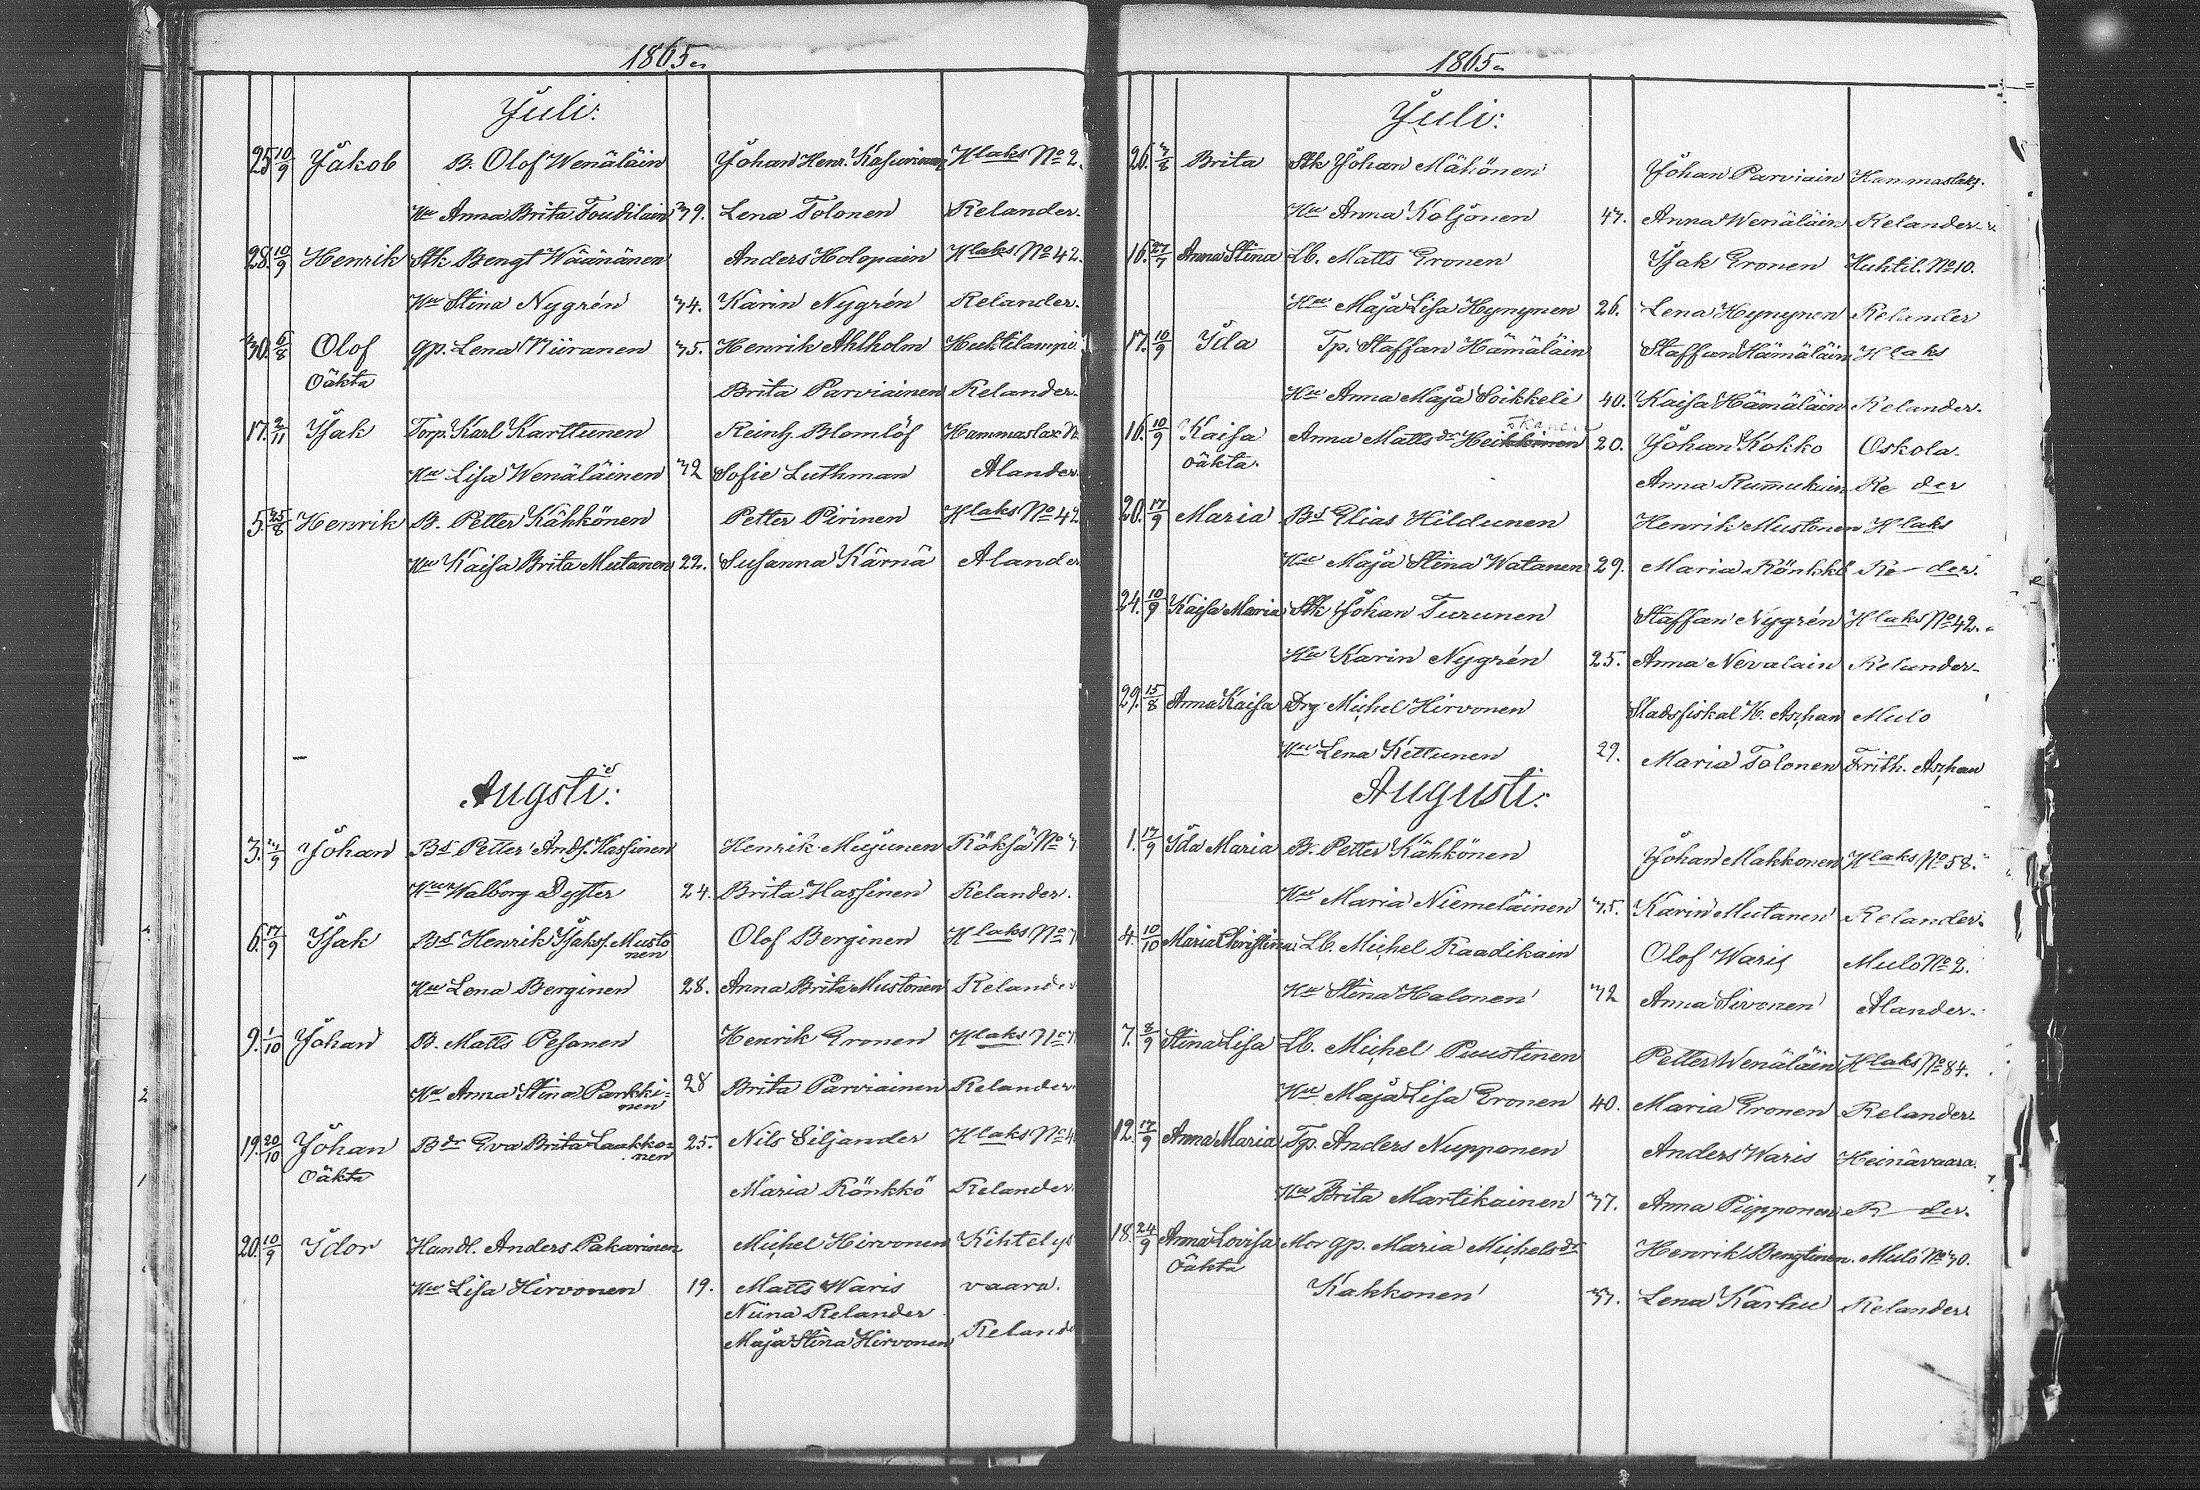 1865.
Juli:
25. 10/9 Jakob B. Olof Wenäläin Johan Henr. Kasurinen Hlaks No 2.
Hu Anna Brita Toudilain 39. Lena Tolonen Relander.
28. 10/9 Henrik Stk Bengt Wäänänen Anders Holopain Hlaks No 42.
Hu Stina Nygrén 34. Karin Nygrén Relander.
30. 6/8 Olof gp. Lena Niiranen 35. Henrik Ahlholm Huhtilampi
Oäkta Brita Parviainen Relander.
17. 2/11 Isak Torp. Karl Karttunen Reinh. Blomlöf Hammaslax N
Hu Lisa Wenäläinen 32 Sofie Luthman Alander
5. 25/8 Henrik B. Petter Kähkönen Petter Pirinen Hlaks No 42
Hu Kaisa Brita Mutanen 22. Susanna Kärnä Alander
Augsti:
3. 3/9 Johan Bs Petter Andss. Hassinen Henrik Mujunen Röksä No
Hu Walborg Dyster 24. Brita Hassinen Relander.
6. 17/9 Isak Bs Henrik Isakss. Musto Olof Berginen Hlaks No
nen
Hu Lena Berginen 28. Anna Brita Mustonen Reland
9. 1/10 Johan B. Matts Pesonen Henrik Eronen Hlaks No
Hu Anna Stina Pankki= 28 Brita Parviainen Relander
nen
19. 20/10 Johan Bdr Eva Brita Laakko= 25. Nils Siljander Hlaks No 4
nen
Oäkta Maria Rönkkö Relander
20. 10/9 Idor Handl. Anders Pakarinen Michel Hirvonen Kihtelys
Hu Lisa Hirvonen 19. Matts Waris vaara.
Niina Relander
Maja Stina Hirvonen Reland
1865.
Juli:
26. 3/8 Brita Stk Johan Mähönen Johan Parviain Hammaslaks.
Hu Anna Koljonen 43. Anna Wenäläin Relander.
16. 27/7 Anna Stina Lb. Matts Eronen Isak Eronen Huhtil. No 10.
Hu Maja Lisa Hynynen 26. Lena Hynynen Relander
17. 10/9 Ida Tp. Staffan Hämäläin Staffan Hämäläin Hlaks
Hu Anna Maja Soikkeli 40. Kaisa Hämäläin Relander.
16. 10/9 Kaisa Anna Matts dr Heikkinen 20. Johan Kokko Oskola.
oäkta. Anna Rummukain Re der
20. 17/9 Maria Bs Elias Hildunen Henrik Mustonen Hlaks
Hu Maja Stina Watanen 29. Maria Rönkkö Re der.
24. 10/9 Kaisa Maria Stk Johan Turunen Staffan Nygrén Hlaks No 42.
Hu Karin Nygrén 25. Anna Nevalain Relander
29. 15/8 Anna Kaisa Drg Michel Hirvonen Stadsfiskal H. Aschan Mulo
Hu Lena Kettunen 29. Maria Tolonen Frith. Aschan
Augusti:
1. 17/9 Ida Maria B. Petter Kähkönen Johan Makkonen Hlaks No 58.
Hu Maria Niemeläinen 35. Karin Mutanen Relander.
4. 10/10 Maria Christina Lb. Michel Raadikain Olof Waris Mulo No 2.
Hu Stina Halonen 32 Anna Sivonen Alander.
7. 8/9 Stina Lisa Lb. Michel Puustinen Petter Wenäläin Hlaks No 84.
Hu Maja Lisa Eronen 40. Maria Eronen Relander
12. 17/9 Anna Maria Tp. Anders Nupponen Anders Waris Heinävaara.
Hu Brita Martikainen 37. Anna Piipponen R der.
18. 24/9 Anna Lovisa Mor gp. Maria Michels dr Henrik Bengtinen. Mulo No 30.
Oäkta Kakkonen 37. Lena Karhu Relander